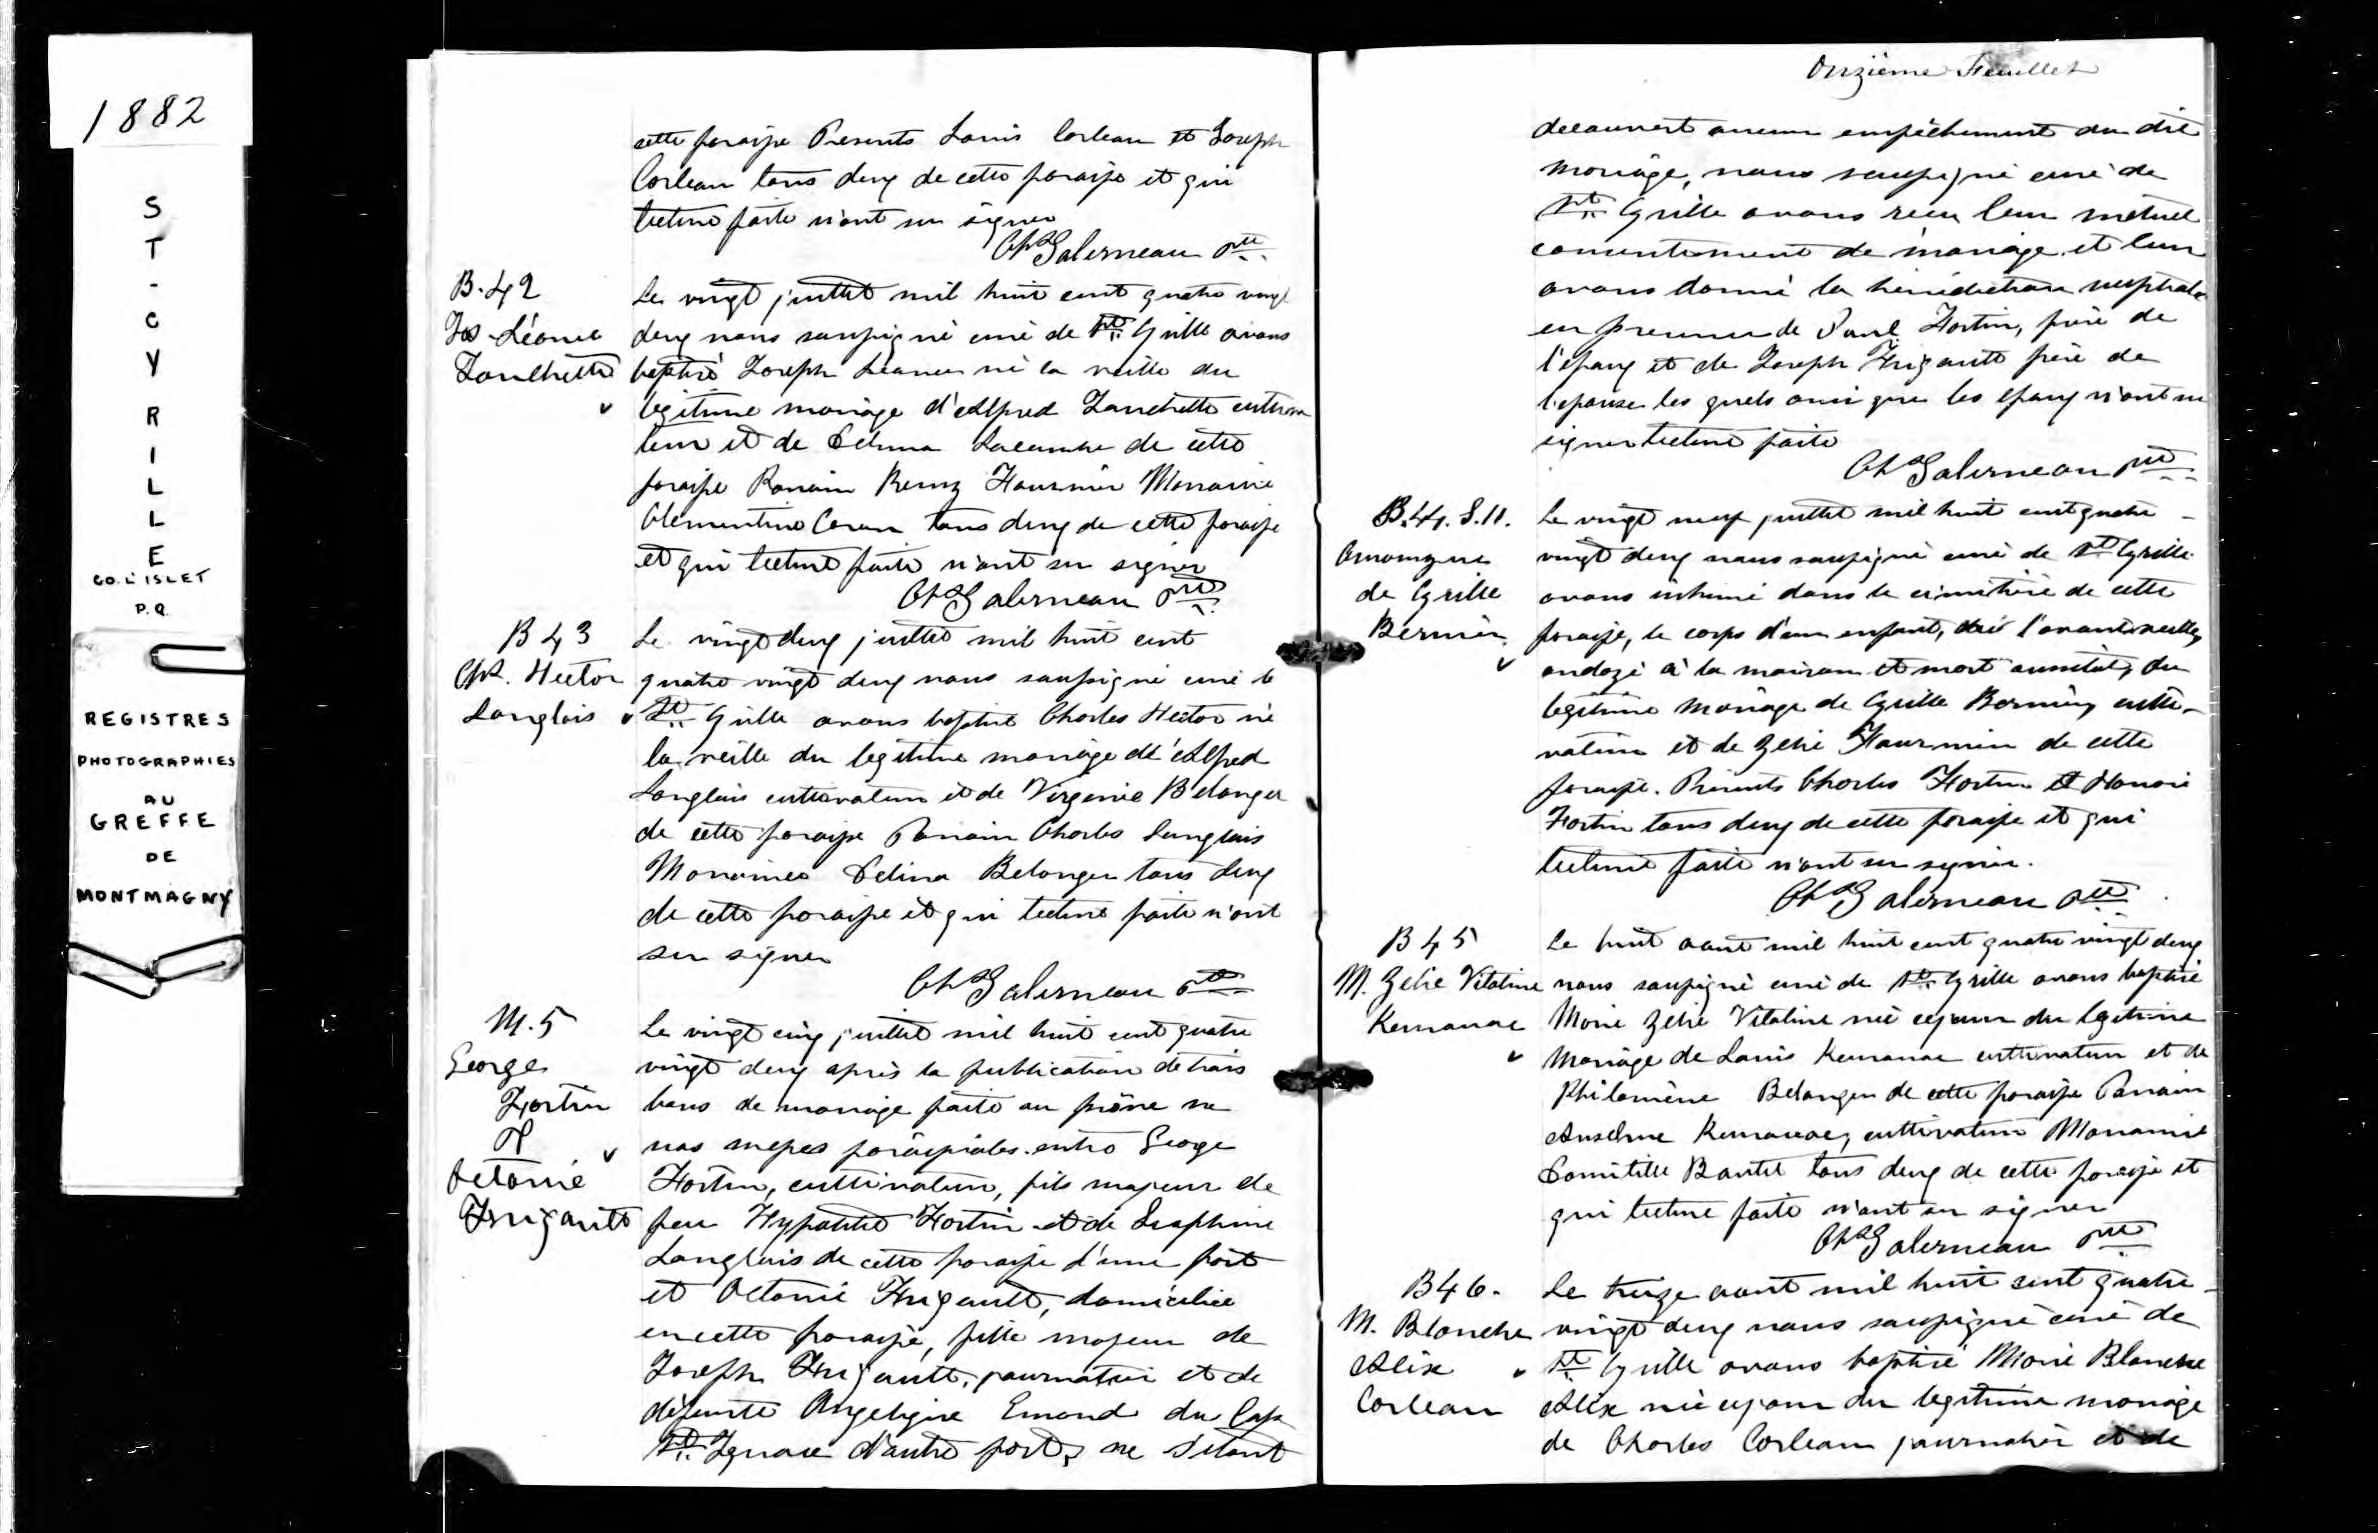 1882
ST-CYRILLE
CO. L'ISLET
P.Q.
REGISTRES
PHOTOGRAPHIES
AU
GREFFE
DE
MONTMAGNY
cette paroisse Presents Louis Corleau et Joseph
Corleau tous deux de cette paroisse et qui
lecture faite n'ont su signer
Chs Galerneau Ptre
B.42
Jos Léonce
Fanchette
Le vingt juillet mil huit cent quatre vingt
deux nous soussigné curé de St Cyrille avons
baptisé Joseph Léonce né la veille du
legitime mariage d'Alfred Fanchette cultiva
teur et de Delima Lacombe de cette
paroisse Parrain Remy Fournier Marraine
Clementine Caron tous deux de cette paroisse
et qui lecture faite n'ont su signer
Chs Galerneau Ptre
B 43
Chs. Hector
Langlois
Le vingt deux juillet mil huit cent
quatre vingt deux nous soussigné curé de
St Cyrille avons baptisé Charles Hector né
la veille du legitime mariage d'Alfred
Langlois cultivateur et de Virginie Belanger
de cette paroisse Parrain Charles Langlois
Marraine Delina Belanger tous deux
de cette paroisse et qui lecture faite n'ont
su signer
Chs Galerneau Ptre
M.5
George
Fortin
&
Octavie
Frigault
Le vingt cinq juillet mil huit cent quatre
vingt deux après la publication de trois
bans de mariage faite au prône de
nos messes paroissiales entre George
Fortin, cultivateur, fils majeur de
feu Hypolite Fortin et de Seraphine
Langlois de cette paroisse d'une part
et Octavie Frigault, domiciliée
en cette paroisse, fille majeur de
Joseph Frigault, journalier et de
défunte Angelique Emond du Cap
St Ignace d'autre part, ne s'étant
Onzième Feuillet
decouvert aucun empêchement au dit
mariage, nous soussigné curé de
St Cyrille avons reçu leur mutuel
consentement de mariage et leur
avons donné la bénédiction nuptiale
en presence de Paul Fortin, frère de
l'époux et de Joseph Frigault père de
l'epouse les quels ainsi que les epoux n'ont su
signer lecture faite
Chs Galerneau Ptre
B.44. S.11.
Anonyme
de Cyrille
Bernier
Le vingt neuf juillet mil huit cent quatre
vingt deux nous soussigné curé de St Cyrille
avons inhumé dans le cimetière de cette
paroisse, le corps d'un enfant, né l'avant veille,
ondoyé à la maison et mort aussitôt, du
legitime mariage de Cyrille Bernier, culti-
vateur et de Zelie Fournier de cette
paroisse. Présents Charles Fortin et Honoré
Fortin tous deux de cette paroisse et qui
lecture faite n'ont su signer.
Chs Galerneau Ptre
B 45
M. Zelie Vitaline
Kerouac
Le huit aout mil huit cent quatre vingt deux
nous soussigné curé de St Cyrille avons baptisé
Marie Zelie Vitaline née ce jour du legitime
mariage de Louis Kerouac cultivateur et de
Philomène Belanger de cette paroisse Parrain
Anselme Kerouac, cultivateur Marraine
Domitille Boutet tous deux de cette paroisse et
qui lecture faite n'ont su signer
Chs Galerneau Ptre
B 46.
M. Blanche
Alix
Corleau
Le treize aout mil huit cent quatre
vingt deux nous soussigné curé de
St Cyrille avons baptisé Marie Blanche
Alix née ce jour du legitime mariage
de Charles Corleau journalier et de